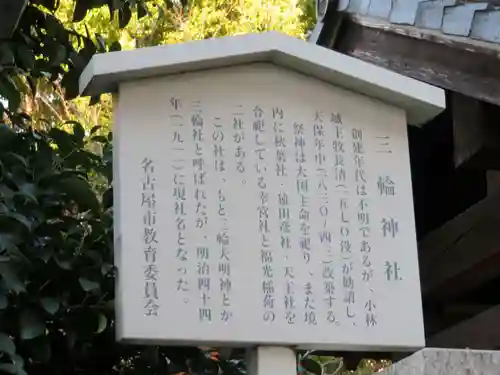 三輪神社
創建年代は不明であるが、小林
城主牧長清(一五七〇没)が勧請し、
天保年中(一八三〇〜四三)改築する。
祭神は大国主命を祀り、また境
内に秋葉社・猿田彦社・天王社を
合祀している幸宮社と福光稲荷の
二社がある。
この社は、もと三輪大明神とか
三輪社と呼ばれたが、明治四十四
年(一九一一)に現社名となった。
名古屋市教育委員会